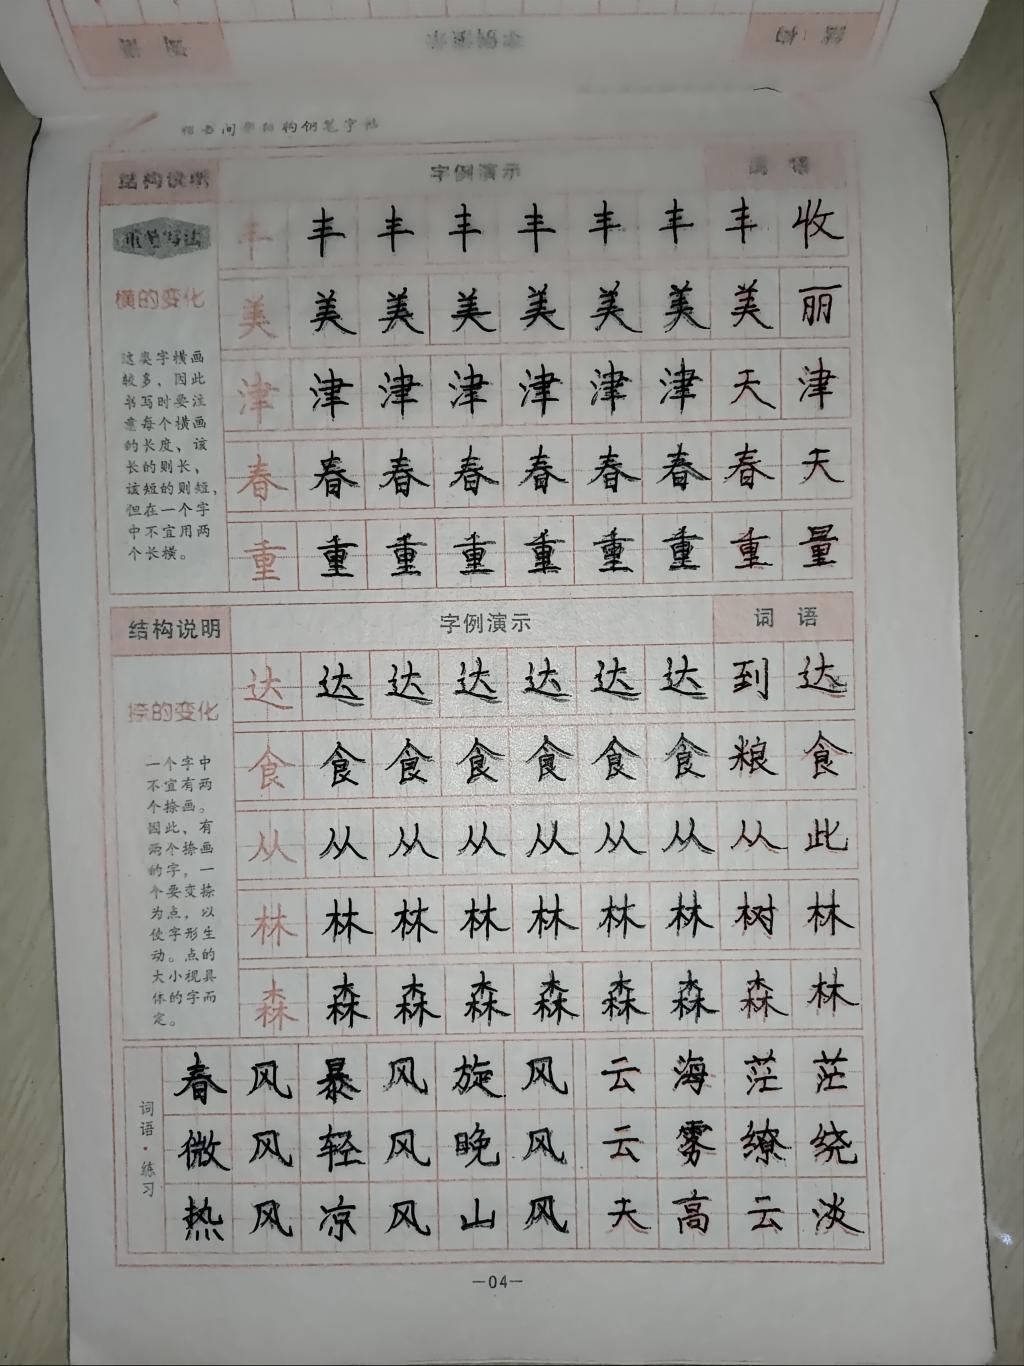 字例演示
楷书间架结构钢笔字帖
结构说明 字例演示 词语
重叠写法
横的变化
这类字横画
较多，因此
书写时要注
意每个横画
的长度，该
长的则长，
该短的则短，
但在一个字
中不宜用两
个长横。
丰 丰 丰 丰 丰 丰 丰 丰 收
美 美 美 美 美 美 美 美 丽
津 津 津 津 津 津 津 天 津
春 春 春 春 春 春 春 春 天
重 重 重 重 重 重 重 重 量
结构说明 字例演示 词语
捺的变化
一个字中
不宜有两
个捺画。
因此，有
两个捺画
的字，一
个要变捺
为点，以
使字形生
动。点的
大小视具
体的字而
定。
达 达 达 达 达 达 达 到 达
食 食 食 食 食 食 食 粮 食
从 从 从 从 从 从 从 从 此
林 林 林 林 林 林 林 树 林
森 森 森 森 森 森 森 森 林
词语·练习
春 风 暴 风 旋 风 云 海 茫 茫
微 风 轻 风 晚 风 云 雾 缭 绕
热 风 凉 风 山 风 天 高 云 淡
—04—